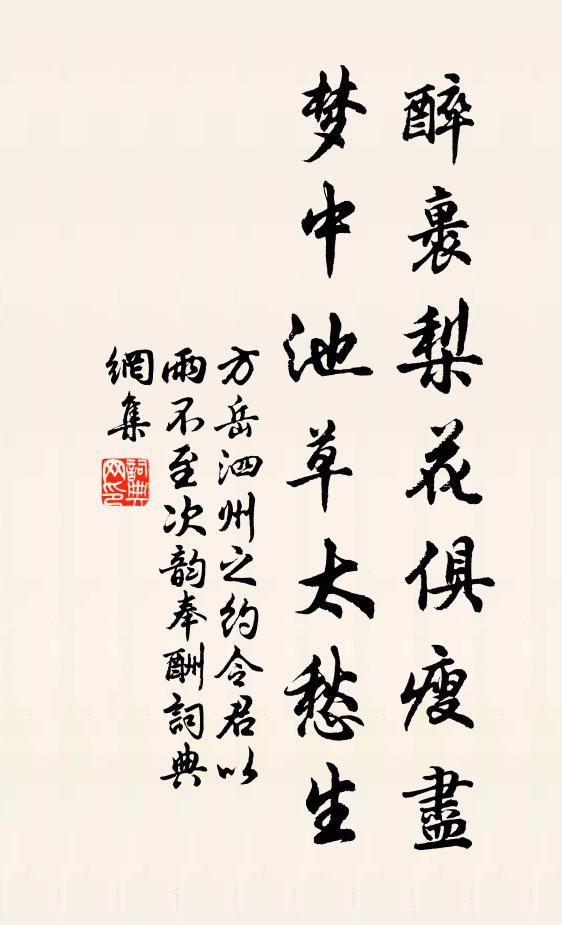 醉裏梨花俱瘦盡
梦中池草太愁生
方岳泗州之約令君以
雨不至次韵奉酬詞典
網集
詞典
网印